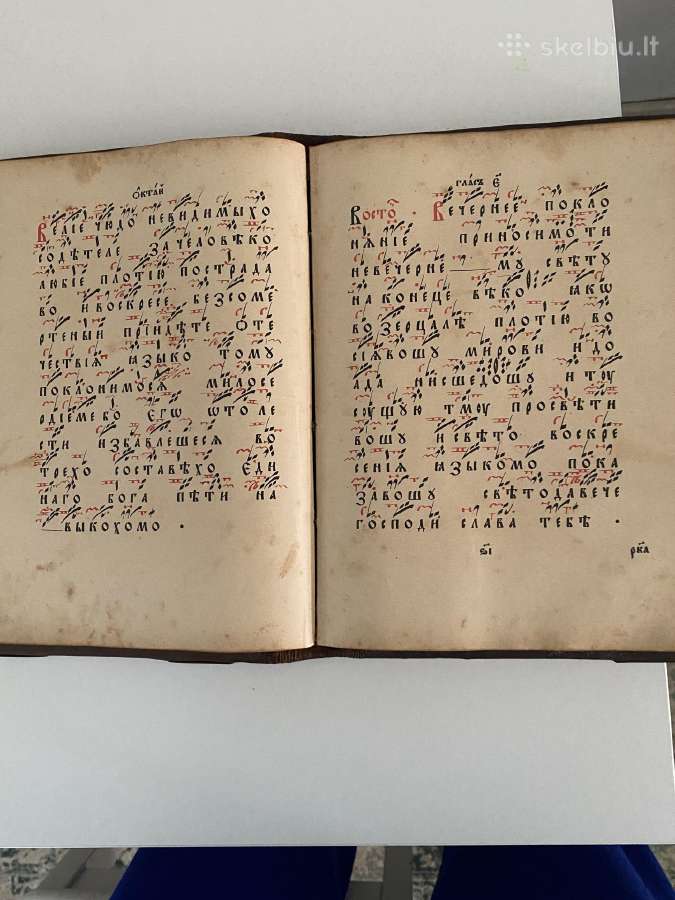 skelbiu.lt
Ѻктаи
Велїе чюдо невидимыхо
содѣтеле зачеловѣко
любїе плотїю пострада
во ивоскресе безсоме
ртеныи прїидѣте ѻте
чествїя ꙗзыко тому
поклонимося милосе
рдїемебо єгѡ ѿтоле
сти избавлешеся во
трехо составѣхо єди
наго бога пѣти на
выкохомо .
гласъ є҃
Восто . Вечернее покло
нянїе приносимоти
невечерне му свѣту
наконеце вѣко ꙗкѡ
возерцалѣ плотїю во
сїявошу мирови идо
ада нисшедошу итꙋ
сꙋщую тмꙋ просвѣти
вошу исвѣто воскре
сенїя ꙗзыкомо пока
завошу свѣтодавече
господи слава тебѣ .
ѕ҃і
рка